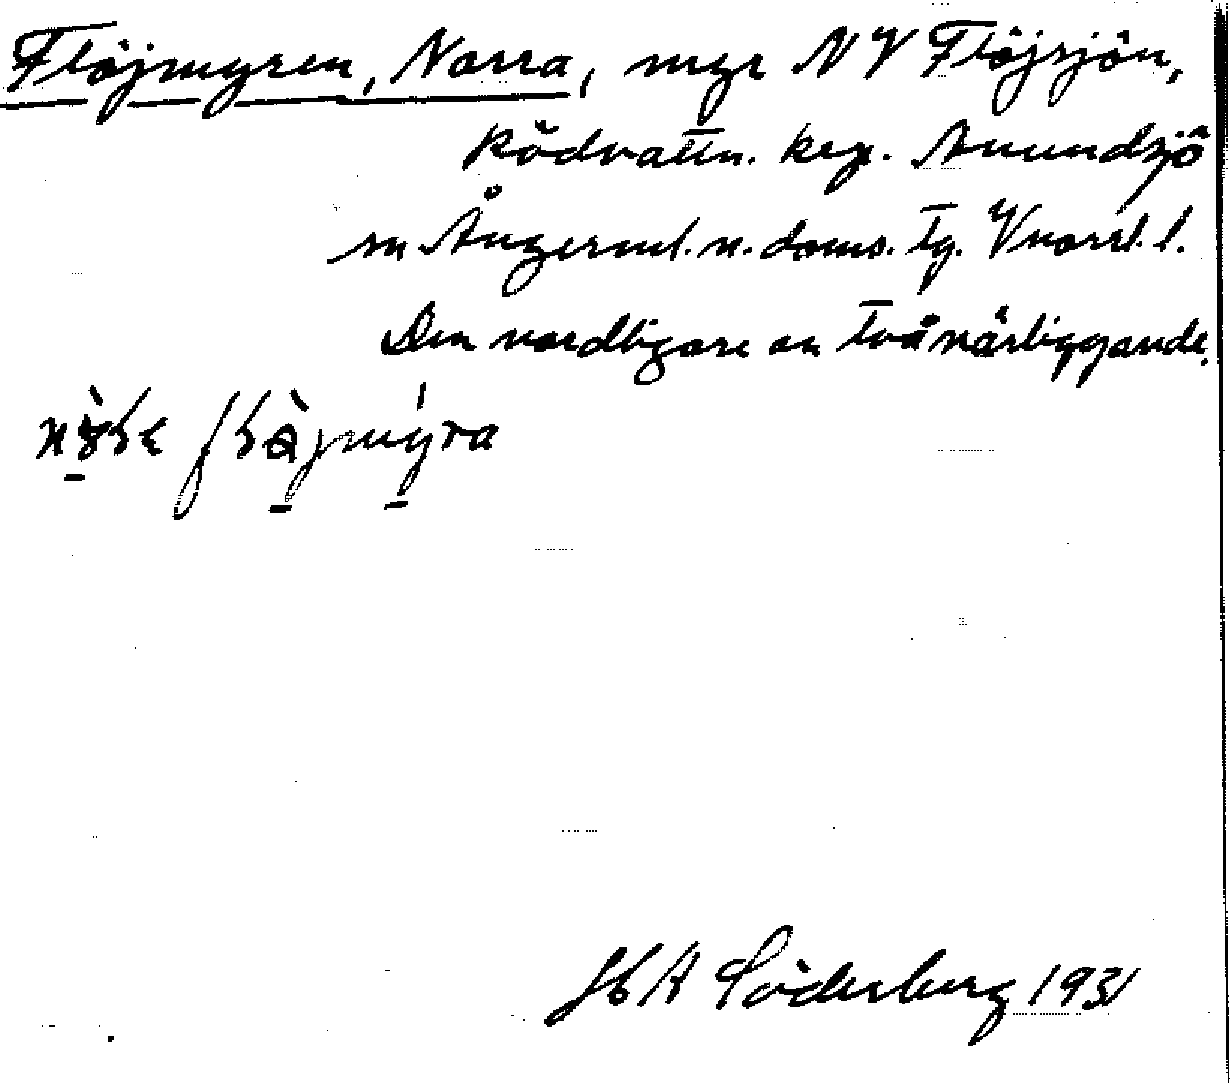 Flöjmyren, Norra, myr NV Flöjsjön,
Rödvattn. krg. Anundsjö
sn Ångerml. n. doms. tg. Vnorrl. l.
Den nordligare av två närliggande.
H A Söderberg 1931